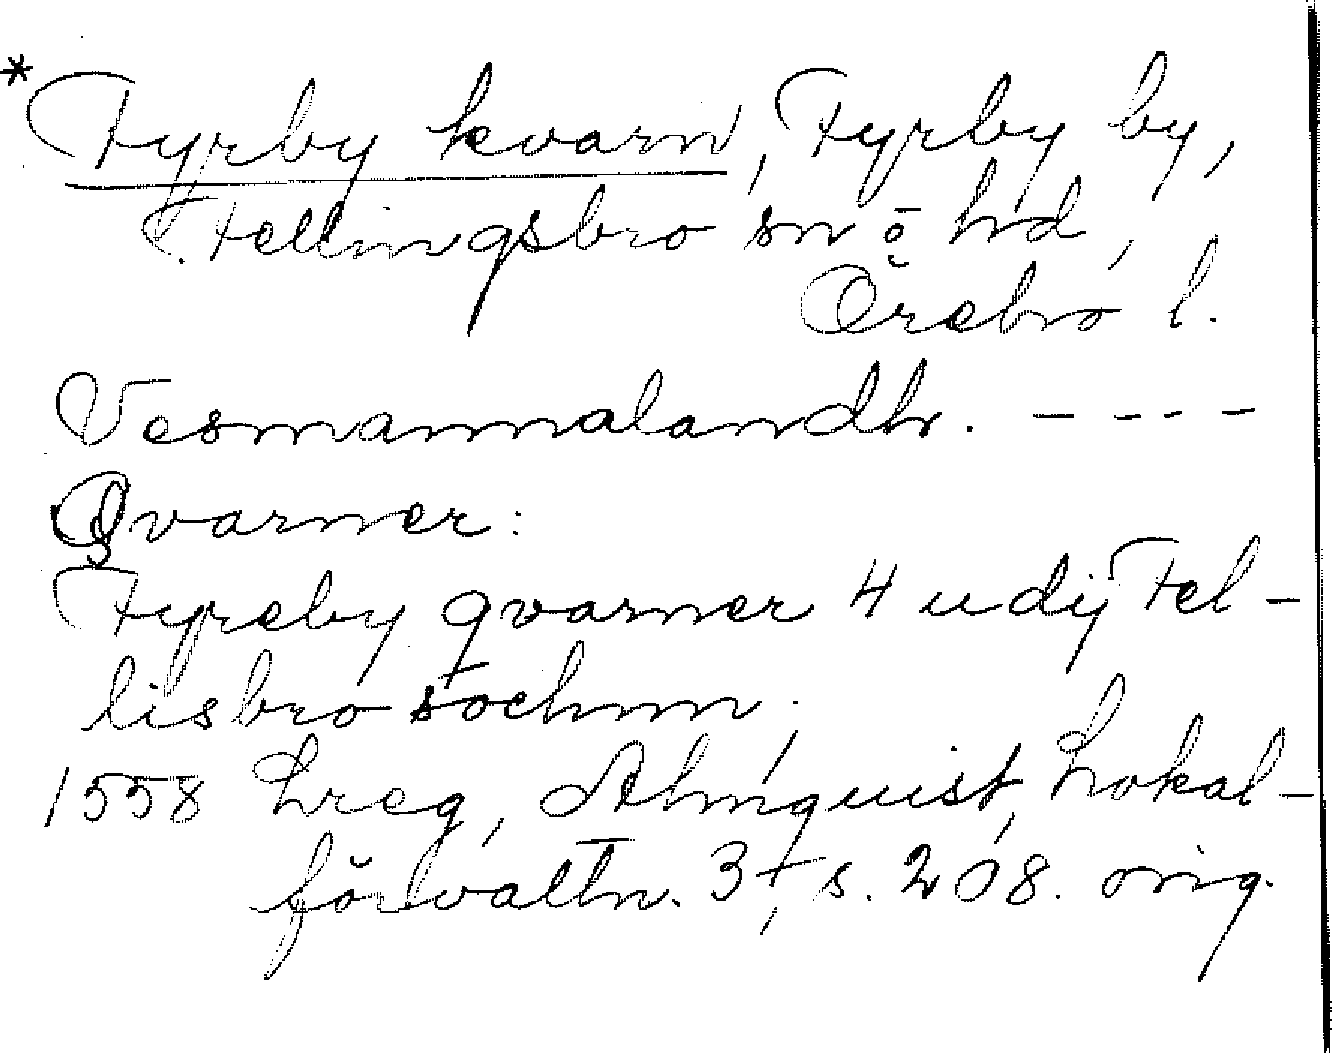 * Fyrby kvarn, Fyrby by,
Fellingsbro sn o hd,
Örebro l.
Vesmannalandhr. - - - -
Qvarner:
Fyreby qvarner 4 udij Fel-
lisbro sochnn.
1558 Lreg, Almquist, Lokal-
förvaltn. 3, s. 208. orig.